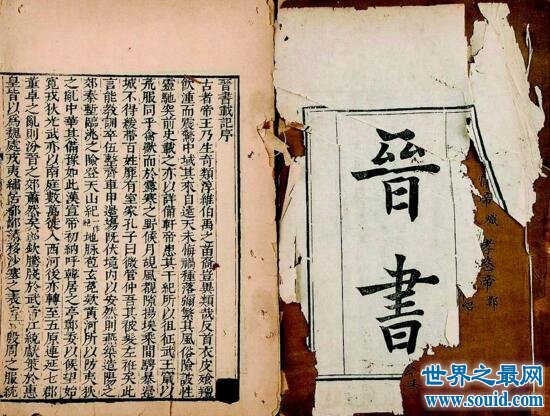 晉書載記序
古者帝王乃生奇類淳維伯禹之苗裔豈異類哉反首衣皮餐羶
飲湩而震驚中域其來自遠天未悔禍種落彌繁其風俗險詖性
靈馳突前史載之亦以詳備軒帝患其干紀所以徂征武王竄以
荒服同乎禽獸而於露寒之野候月覘風覩隙揚埃乘間騁暴邊
城不得緩帶百姓靡有室家孔子曰微管仲吾其被髮左衽矣此
言能教訓卒伍整齊車甲邊場既伏境內以安然則燕築造陽之
郊秦塹臨洮之險登天山紀地脉苞玄菟款黃河所以防夷狄
之亂中華其備豫如此漢宣帝初納呼韓居之亭鄣委以候望始
寬戎狄光武亦以南庭數萬徙入西河後亦轉至五原連延七郡
董卓之亂則汾晉之郊蕭然矣郭欽騰牋於武帝江統獻策於惠
皇皆以為魏處戎夷繡居都鄙請移沙塞之表定一殷周之服統
晉書
世界之最网
www.souid.com